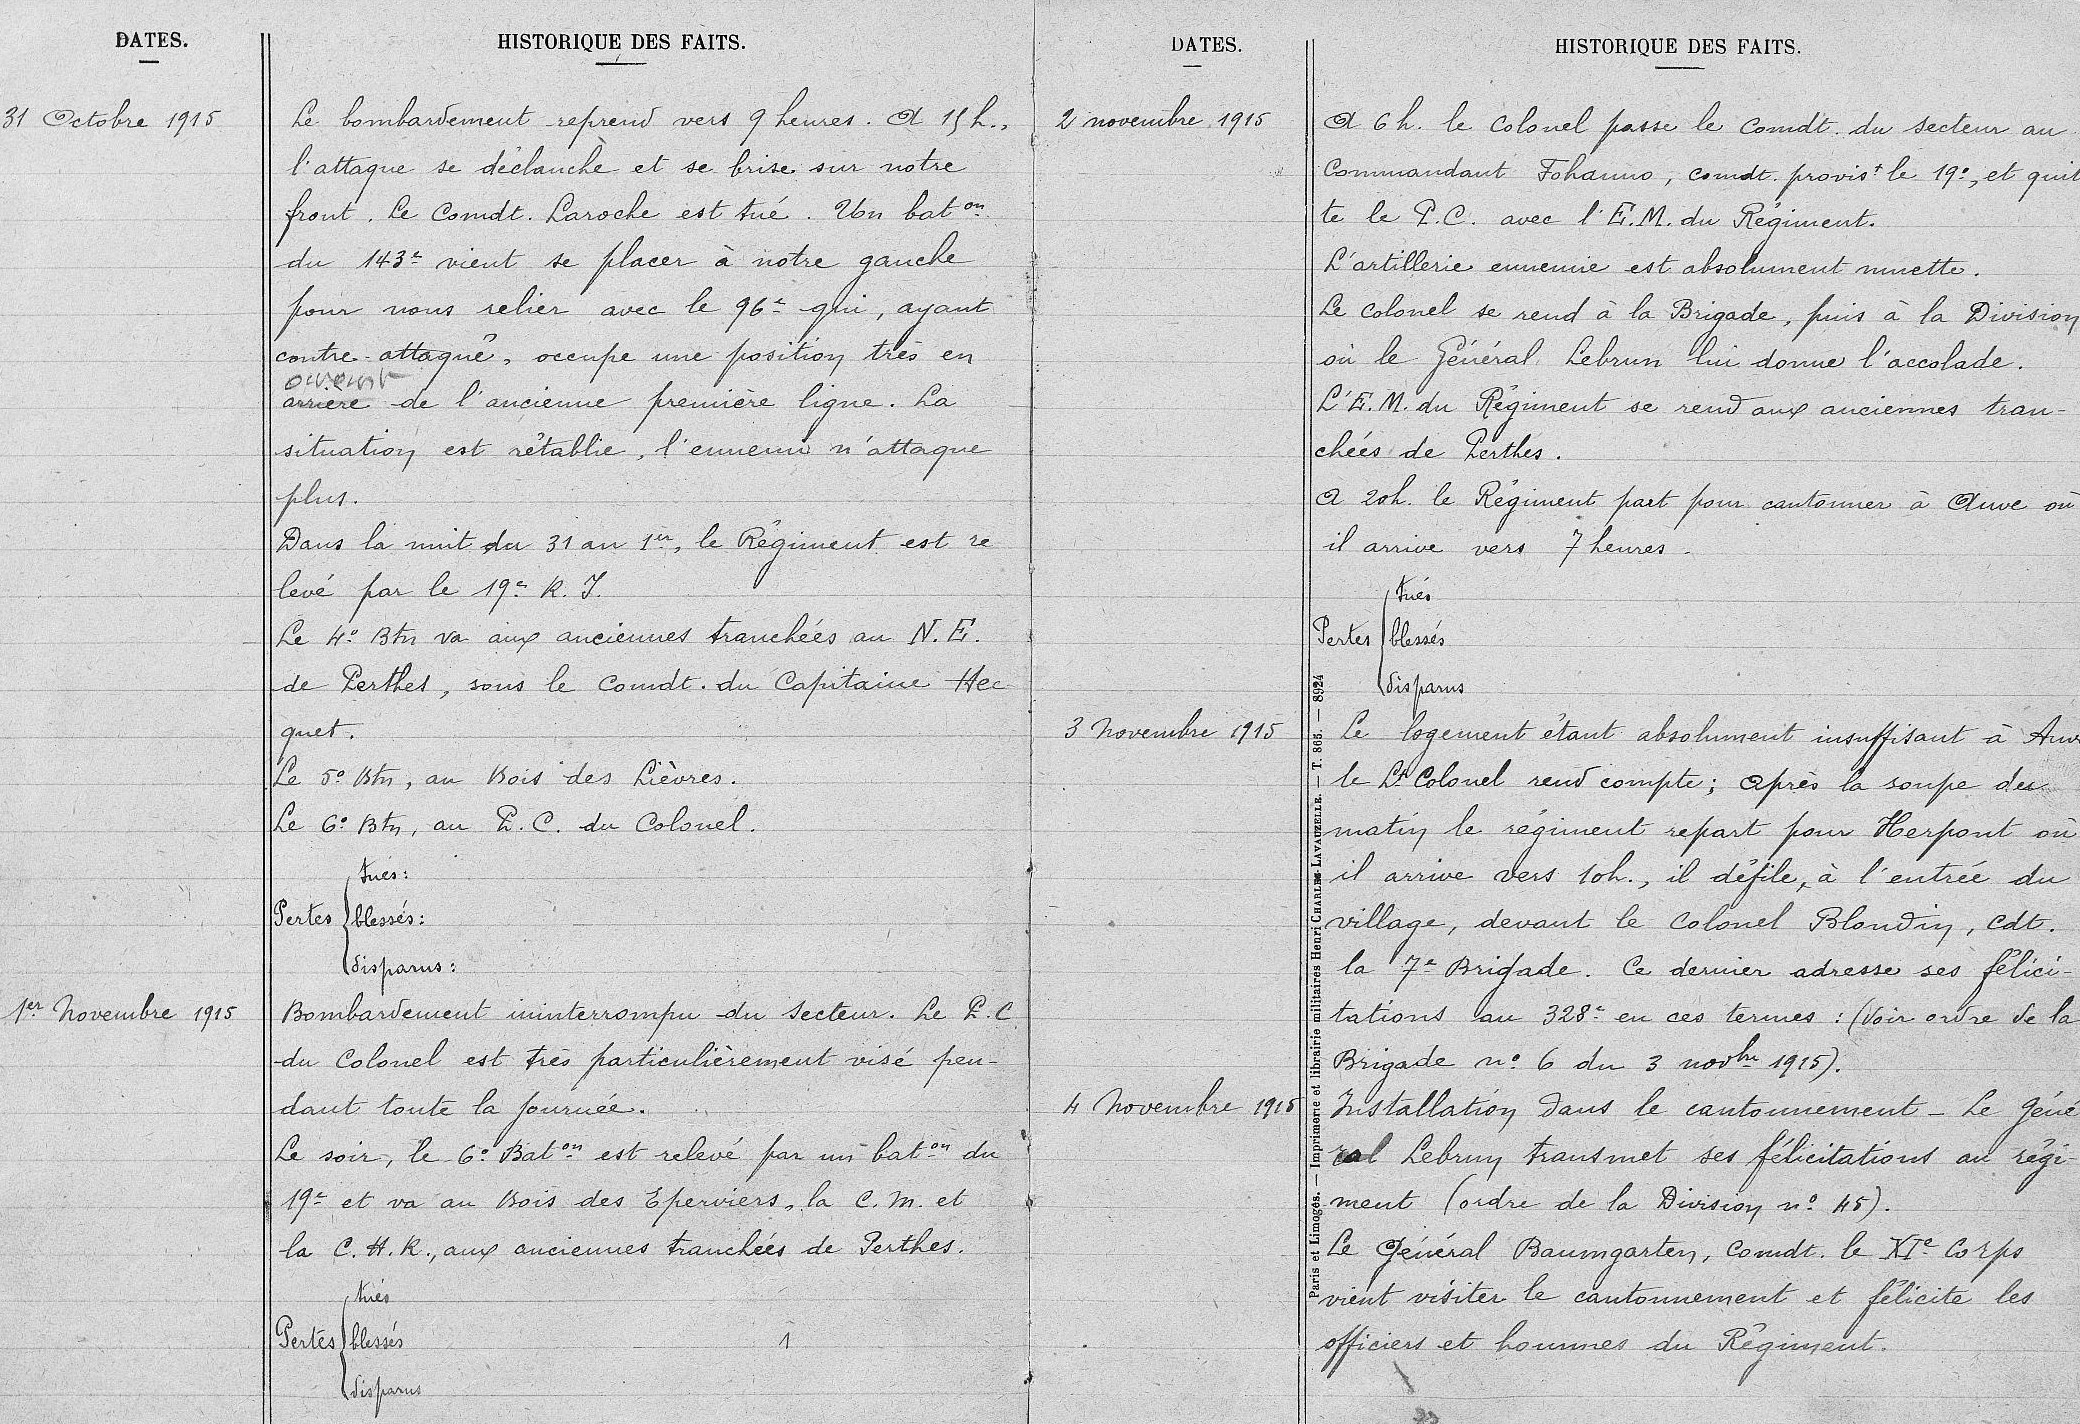 DATES.
HISTORIQUE DES FAITS.
31 Octobre 1915
Le bombardement reprend vers 9 heures. A 15h.,
l'attaque se déclanche et se brise sur notre
front. Le Comdt. Laroche est tué. Un bat on
du 143e vient se placer à notre gauche
pour nous relier avec le 96e qui, ayant
contre-attaqué, occupe une position très en
avant
arrière de l'ancienne première ligne. La
situation est rétablie, l'ennemi n'attaque
plus.
Dans la nuit du 31 au 1er, le Régiment est re
levé par le 19e R.I.
Le 4e Btn va aux anciennes tranchées au N.E.
de Perthes, sous le Comdt. du Capitaine Hec
quet.
Le 5e Btn, au Bois des Lièvres.
Le 6e Btn, au P.C. du Colonel.
tués:
Pertes blessés:
disparus:
1er Novembre 1915
Bombardement ininterrompu du secteur. Le P.C.
du Colonel est très particulièrement visé pen-
dant toute la journée.
Le soir, le 6e Baton est relevé par un baton du
19e et va au Bois des Eperviers, la C.M. et
la C.H.R., aux anciennes tranchées de Perthes.
tués
Pertes blessés 1
disparus
DATES.
HISTORIQUE DES FAITS.
2 novembre 1915
A 6h. le Colonel passe le Comdt. du secteur au
Commandant Johanno, comdt. provist le 19e, et quit
te le P.C. avec l'E.M. du Régiment.
L'artillerie ennemie est absolument muette.
Le Colonel se rend à la Brigade, puis à la Division
où le Général Lebrun lui donne l'accolade.
L'E.M. du Régiment se rend aux anciennes tran-
chées de Perthes.
A 20h. le Régiment part pour cantonner à Auve où
il arrive vers 7 heures.
tués
Pertes blessés
disparus
3 Novembre 1915
Le logement étant absolument insuffisant à Auve
le Lt Colonel rend compte; après la soupe du
matin le régiment repart pour Herpont où
il arrive vers 10h., il défile, à l'entrée du
village, devant le Colonel Blondin, Cdt.
la 7e Brigade. Ce dernier adresse ses félici-
tations au 328e en ces termes : (Voir ordre de la
Brigade no 6 du 3 novbre 1915).
4 Novembre 1915
Installation dans le cantonnement - Le Géné
ral Lebrun transmet ses félicitations au régi-
ment (ordre de la Division no 45).
Le Général Baumgarten, Comdt. le XIe Corps
vient visiter le cantonnement et félicite les
officiers et hommes du Régiment.
Paris et Limoges. — Imprimerie et librairie militaires Henri CHARLES-LAVAUZELLE. — T. 865. — 8924